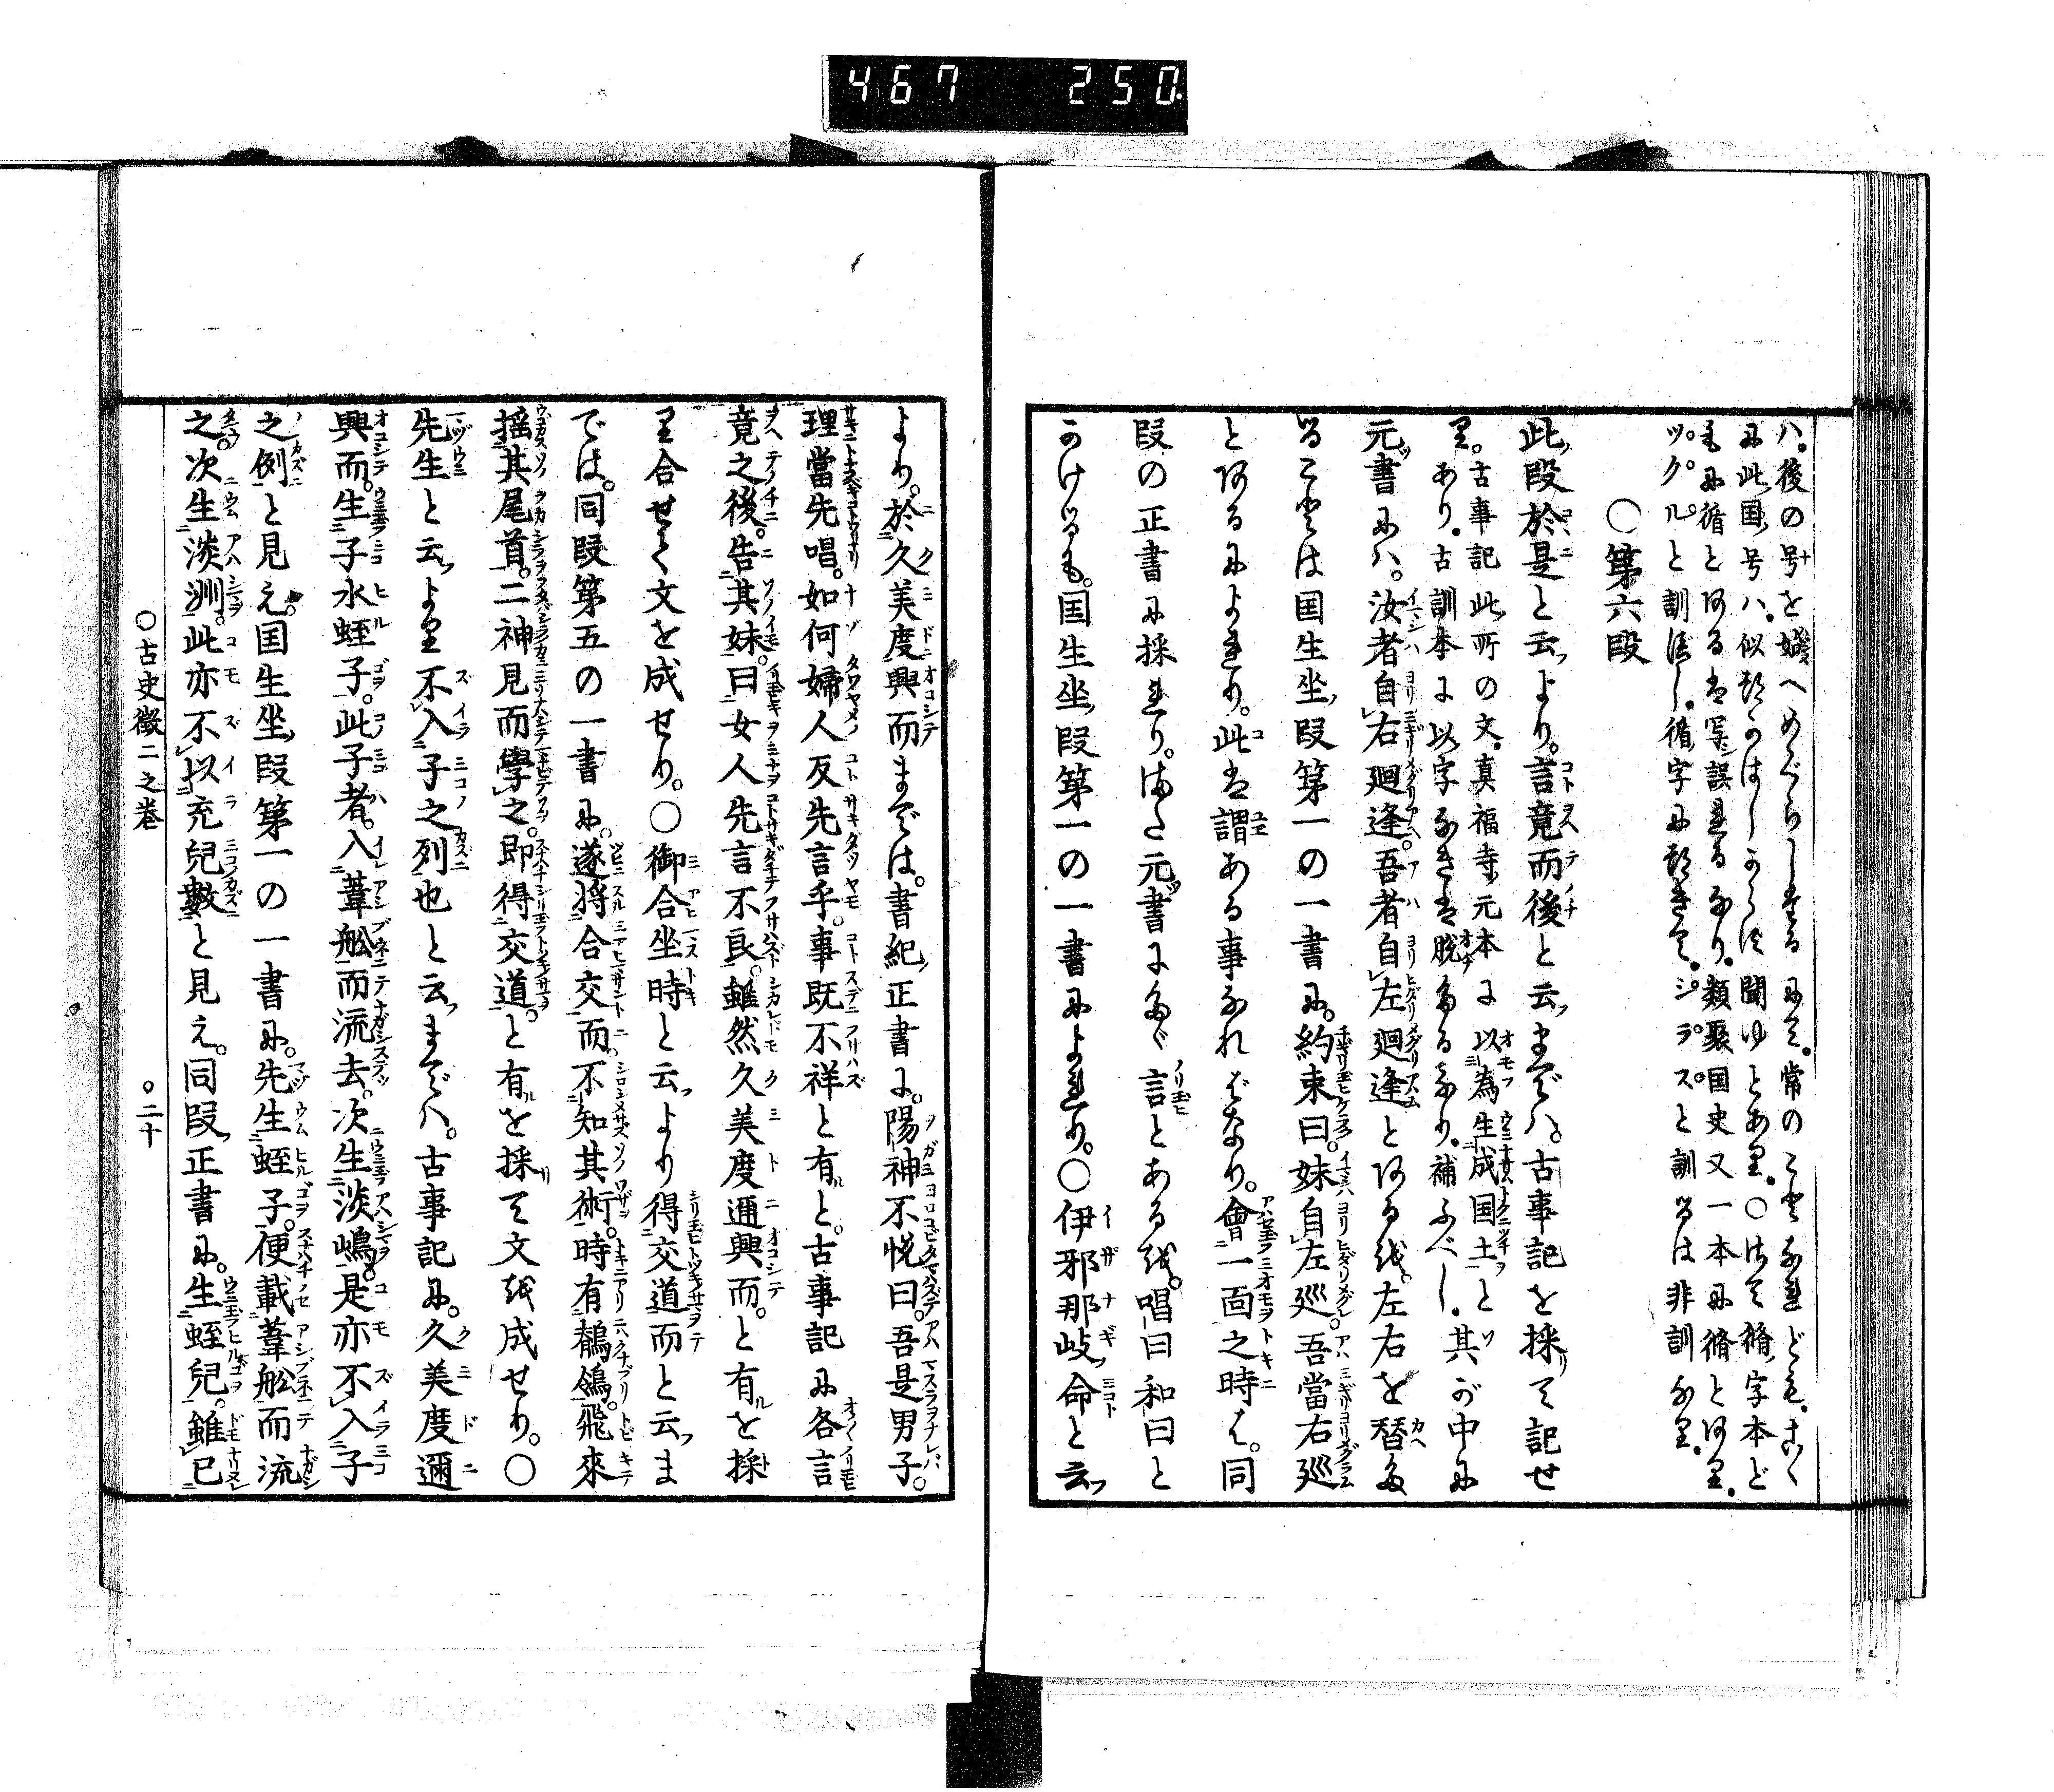 467 250
ハ。後の号を始へめぐらしたるにて。常のことなれども。古く
に此国号ハ。似都かはしからず聞ゆとあり。〇さて脩字本ど
もに循とあるは写誤れるなり。類聚国史又一本に脩とあり。
ツクルと訓べし。循字に都きて。シラスと訓るは非訓なり。
〇第六段
此段於是と云より。言竟而後と云までハ。古事記を採て記せ
り。古事記此所の文。真福寺元本に以為生成国土と
あり。古訓本に以字なきは脱たるなり。補ふべし。其が中に
元書にハ。汝者自右廻逢。吾者自左廻逢とある を。左右を替た
ることは国生坐段第一の一書に。約束曰。妹自左巡。吾當右巡
とあるによれり。此は謂ある事なればなり。會一面之時は。同
段の正書に採れり。また元書にたゞ言とあるを。唱曰和曰と
かけるも。国生坐段第一の一書によれり。〇伊邪那岐命と云
より。於久美度興而までは。書紀正書に。陽神不悦曰。吾是男子。
理當先唱。如何婦人反先言乎。事既不祥と有と。古事記に各言
竟之後。告其妹曰。女人先言不良。雖然久美度邇興而。と有を採
り合せて文を成せり。〇御合坐時と云より得交道而と云ま
では。同段第五の一書に。遂将合交而。不知其術。時有鶺鴒。飛來
揺其尾首。二神見而學之。即得交道。と有を採て文を成せり。〇
先生と云より不入子之列也と云までハ。古事記に。久美度邇
興而。生子水蛭子。此子者。入葦船而流去。次生淡嶋。是亦不入子
之例と見え。国生坐段第一の一書に。先生蛭子。便載葦船而流
之。次生淡洲。此亦不以充兒數と見え。同段正書に。生蛭兒。雖已
〇古史徴二之巻 〇二十